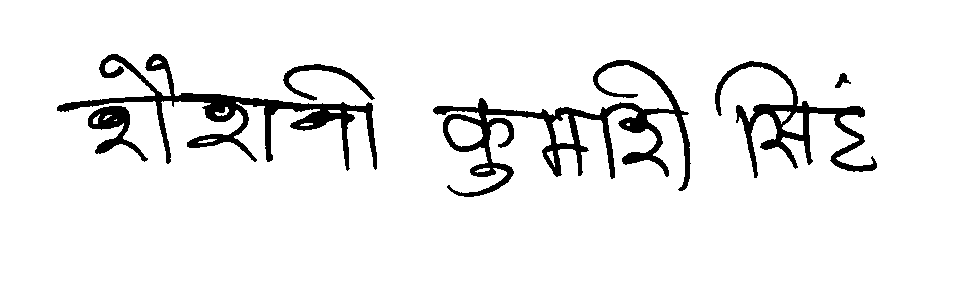 रौशनी कुमारी सिहं